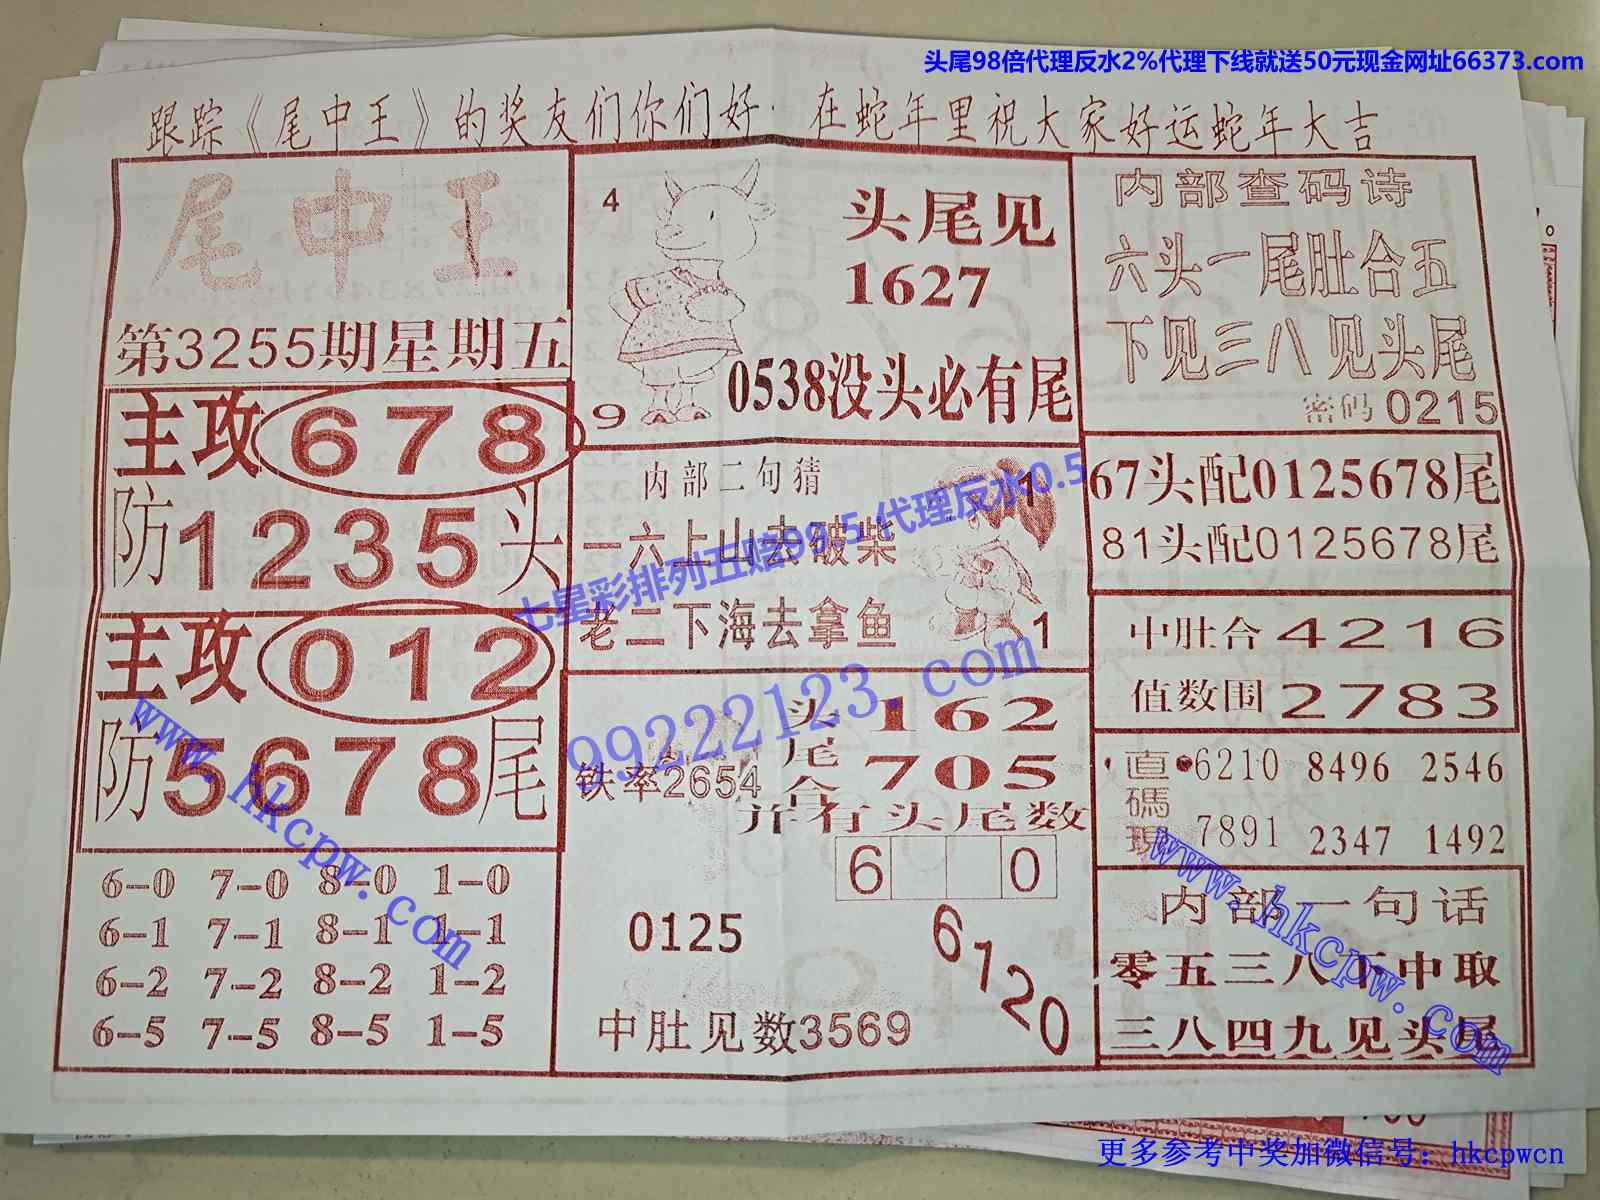 头尾98倍代理反水2%代理下线就送50元现金网址66373.com
跟踪《尾中王》的奖友们你们好.在蛇年里祝大家好运蛇年大吉
尾中王
第3255期星期五
主攻678
防1235头
主攻012
防5678尾
6-0 7-0 8-0 1-0
6-1 7-1 8-1 1-1
6-2 7-2 8-2 1-2
6-5 7-5 8-5 1-5
4
9
头尾见
1627
0538没头必有尾
内部二句猜
一六上山去破柴
老二下海去拿鱼
1
1
七星彩排列五赔99.5 代理反水0.5
99222123.com
头162
尾705
合
铁率2654
并有头尾数
6 0
0125
61720
中肚见数3569
内部查码诗
六头一尾肚合五
下见三八见头尾
密码0215
67头配0125678尾
81头配0125678尾
中肚合4216
值数围2783
直碼
6210 8496 2546
7891 2347 1492
内部一句话
零五三八下中取
三八四九见头尾
www.hkcpw.com
www.hkcpw.com
更多参考中奖加微信号：hkcpwcn